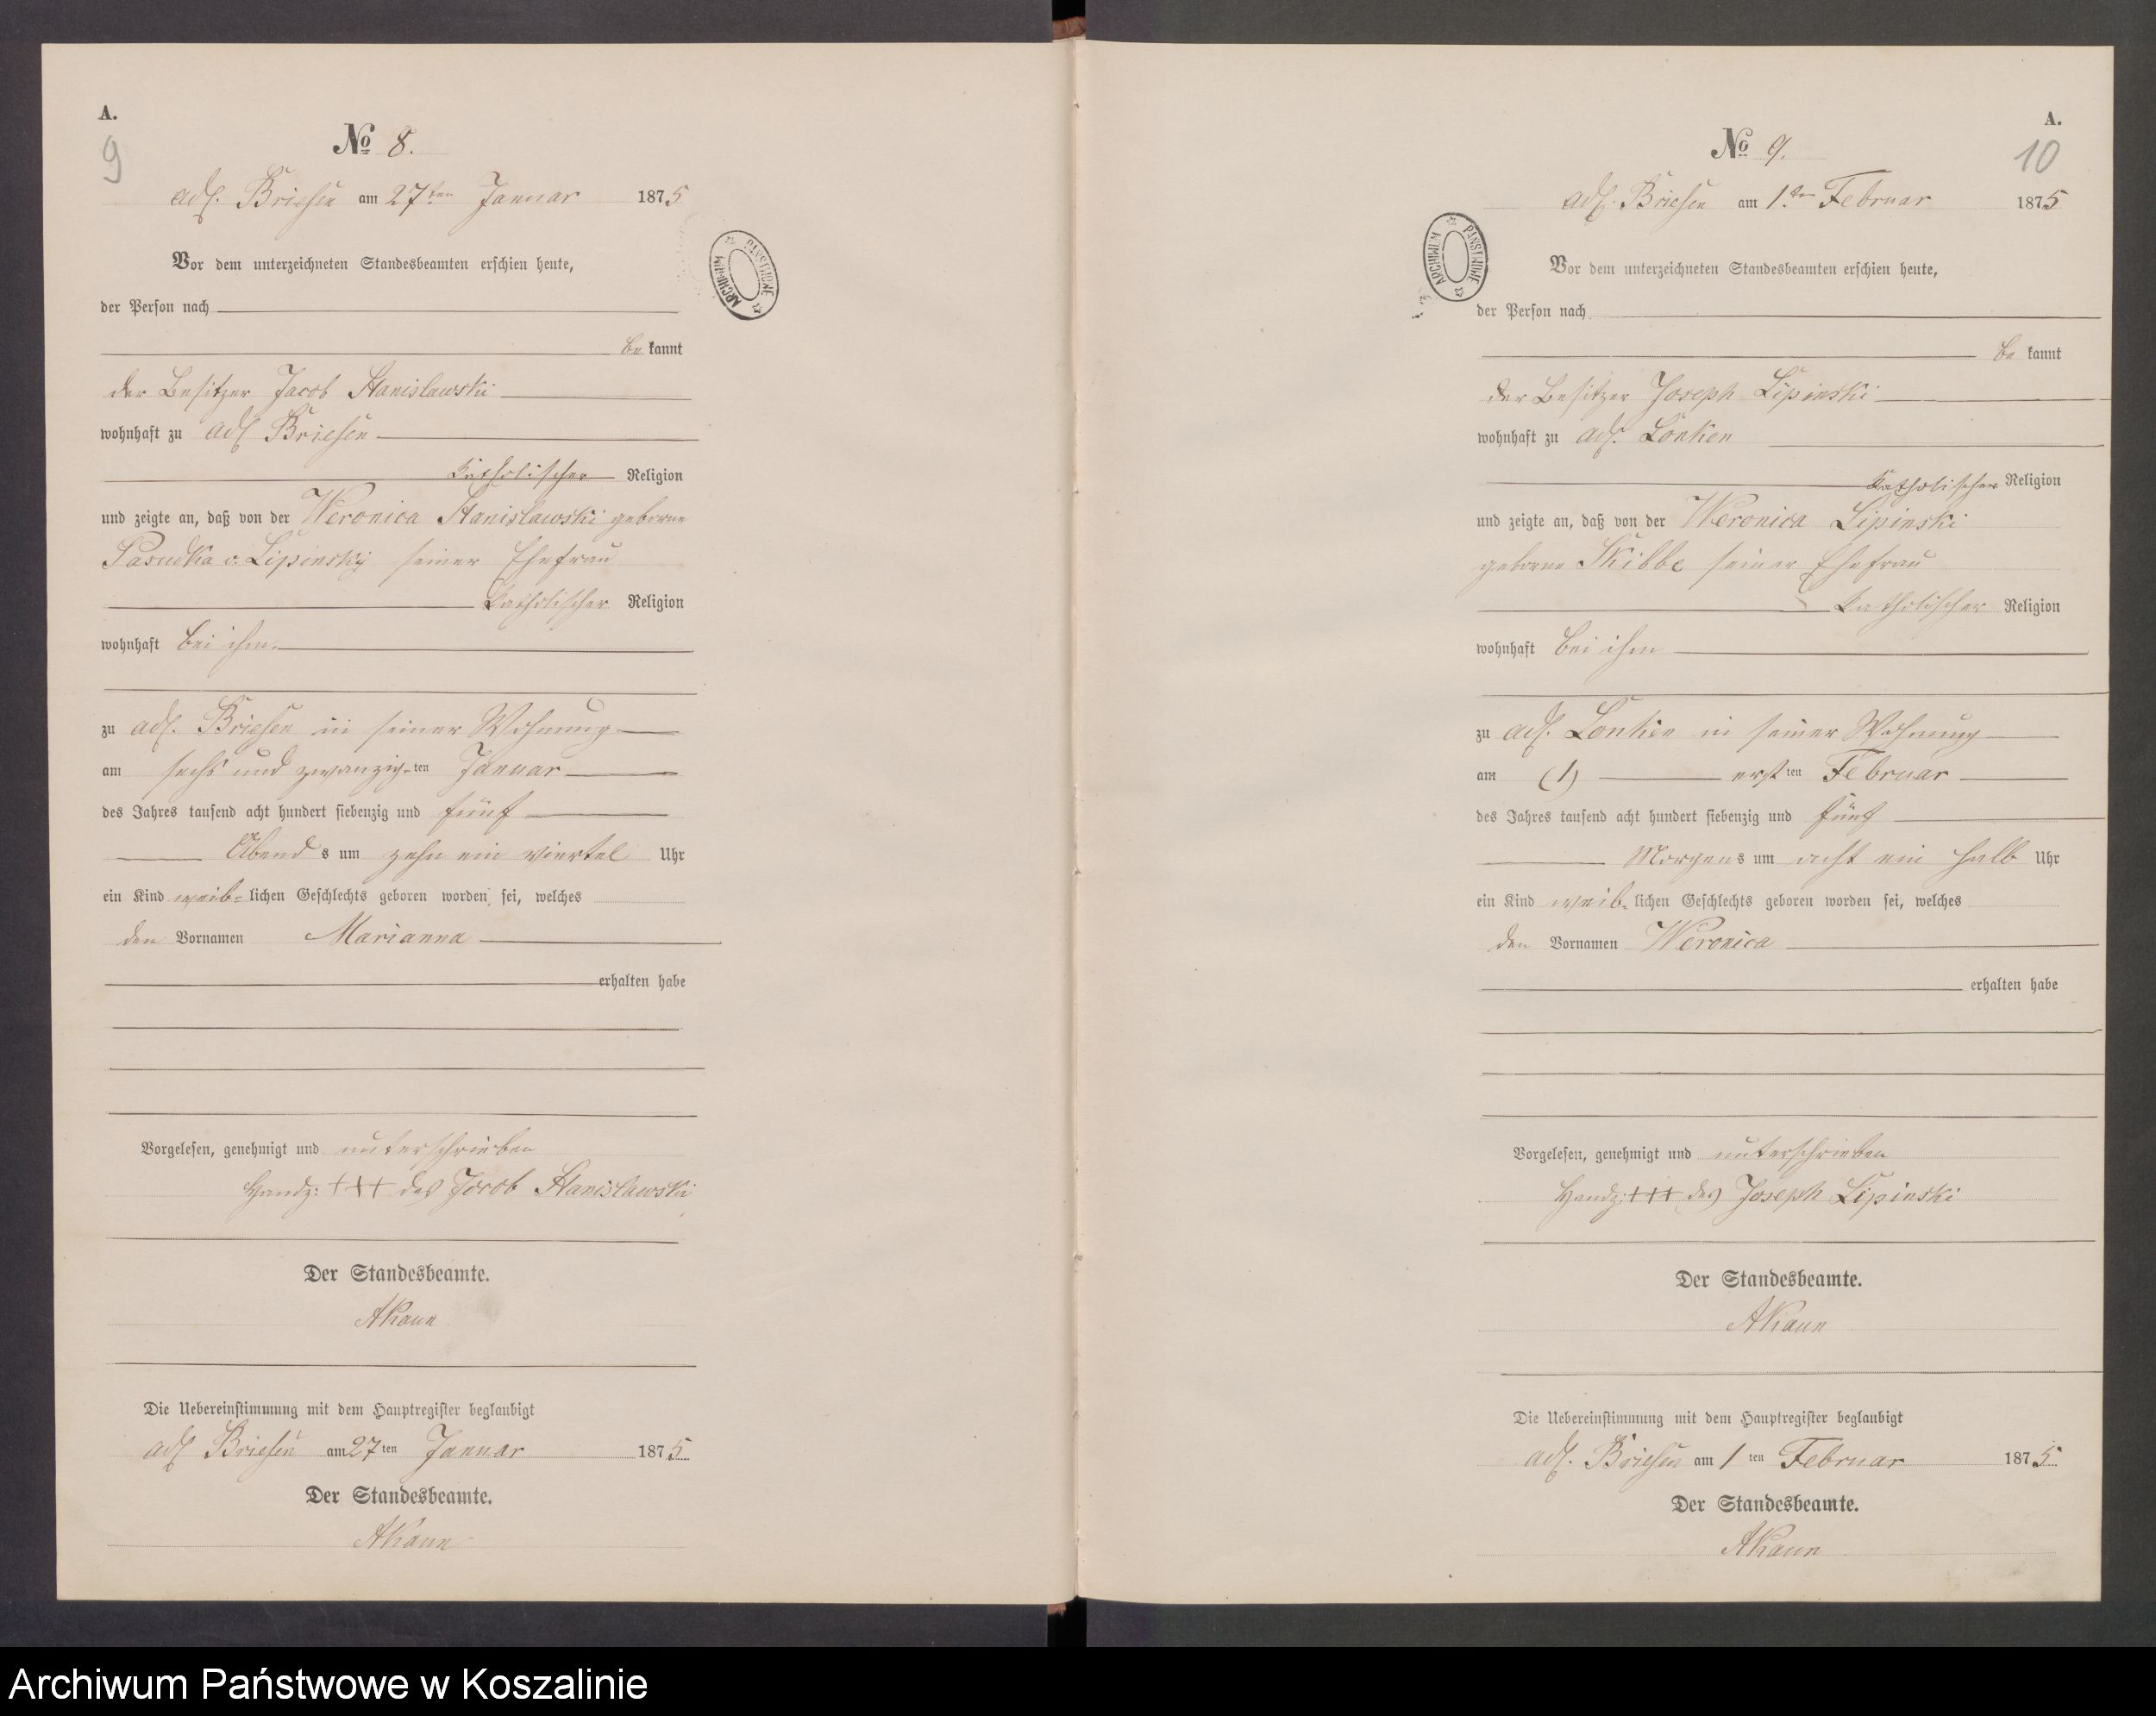 A.
9
No 8.
adl. Briesen am 27ten Januar 1875
Vor dem unterzeichneten Standesbeamten erschien heute,
der Person nach
be kannt
der Besitzer Jacob Stanislawski
wohnhaft zu adl Briesen
katholischer Religion
und zeigte an, daß von der Weronica Stanislawski geborne
Pasudka v. Lipinsky seiner Ehefrau
katholischer Religion
wohnhaft bei ihm
zu adl. Briesen in seiner Wohnung
am sechs und zwanzig-ten Januar
des Jahres tausend acht hundert siebenzig und fünf
Abend s um zehn ein viertel Uhr
ein Kind weib- lichen Geschlechts geboren worden sei, welches
den Vornamen Marianna
erhalten habe
Vorgelesen, genehmigt und unterschrieben
Handz: +++ des Jacob Stanislawski
Der Standesbeamte.
AKaun
Die Uebereinstimmung mit dem Hauptregister beglaubigt
adl Briesen am 27 ten Januar 1875
Der Standesbeamte.
AKaun
ARCHIWUM PAŃSTWOWE
A.
10
No 9.
adl. Briesen am 1.ten Februar 1875
ARCHIWUM PAŃSTWOWE
Vor dem unterzeichneten Standesbeamten erschien heute,
der Person nach
be kannt
der Besitzer Joseph Lipinski
wohnhaft zu adl. Lonken
katholischer Religion
und zeigte an, daß von der Weronica Lipinski
geborne Skibbe seiner Ehefrau
katholischer Religion
wohnhaft bei ihm
zu adl. Lonken in seiner Wohnung
am (1) erst ten Februar
des Jahres tausend acht hundert siebenzig und fünf
Morgen s um acht ein halb Uhr
ein Kind weib- lichen Geschlechts geboren worden sei, welches
den Vornamen Weronica
erhalten habe
Vorgelesen, genehmigt und unterschrieben
Handz: +++ des Joseph Lipinski
Der Standesbeamte.
AKaun
Die Uebereinstimmung mit dem Hauptregister beglaubigt
adl. Briesen am 1 ten Februar 1875
Der Standesbeamte.
AKaun
Archiwum Państwowe w Koszalinie